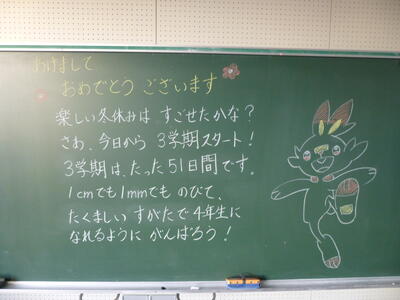 あけまして
おめでとう ございます
楽しい冬休みは すごせたかな？
さあ、今日から 3学期スタート！
3学期は、たった51日間です。
1cmでも1mmでも のびて、
たくましい すがたで4年生に
なれるように がんばろう！